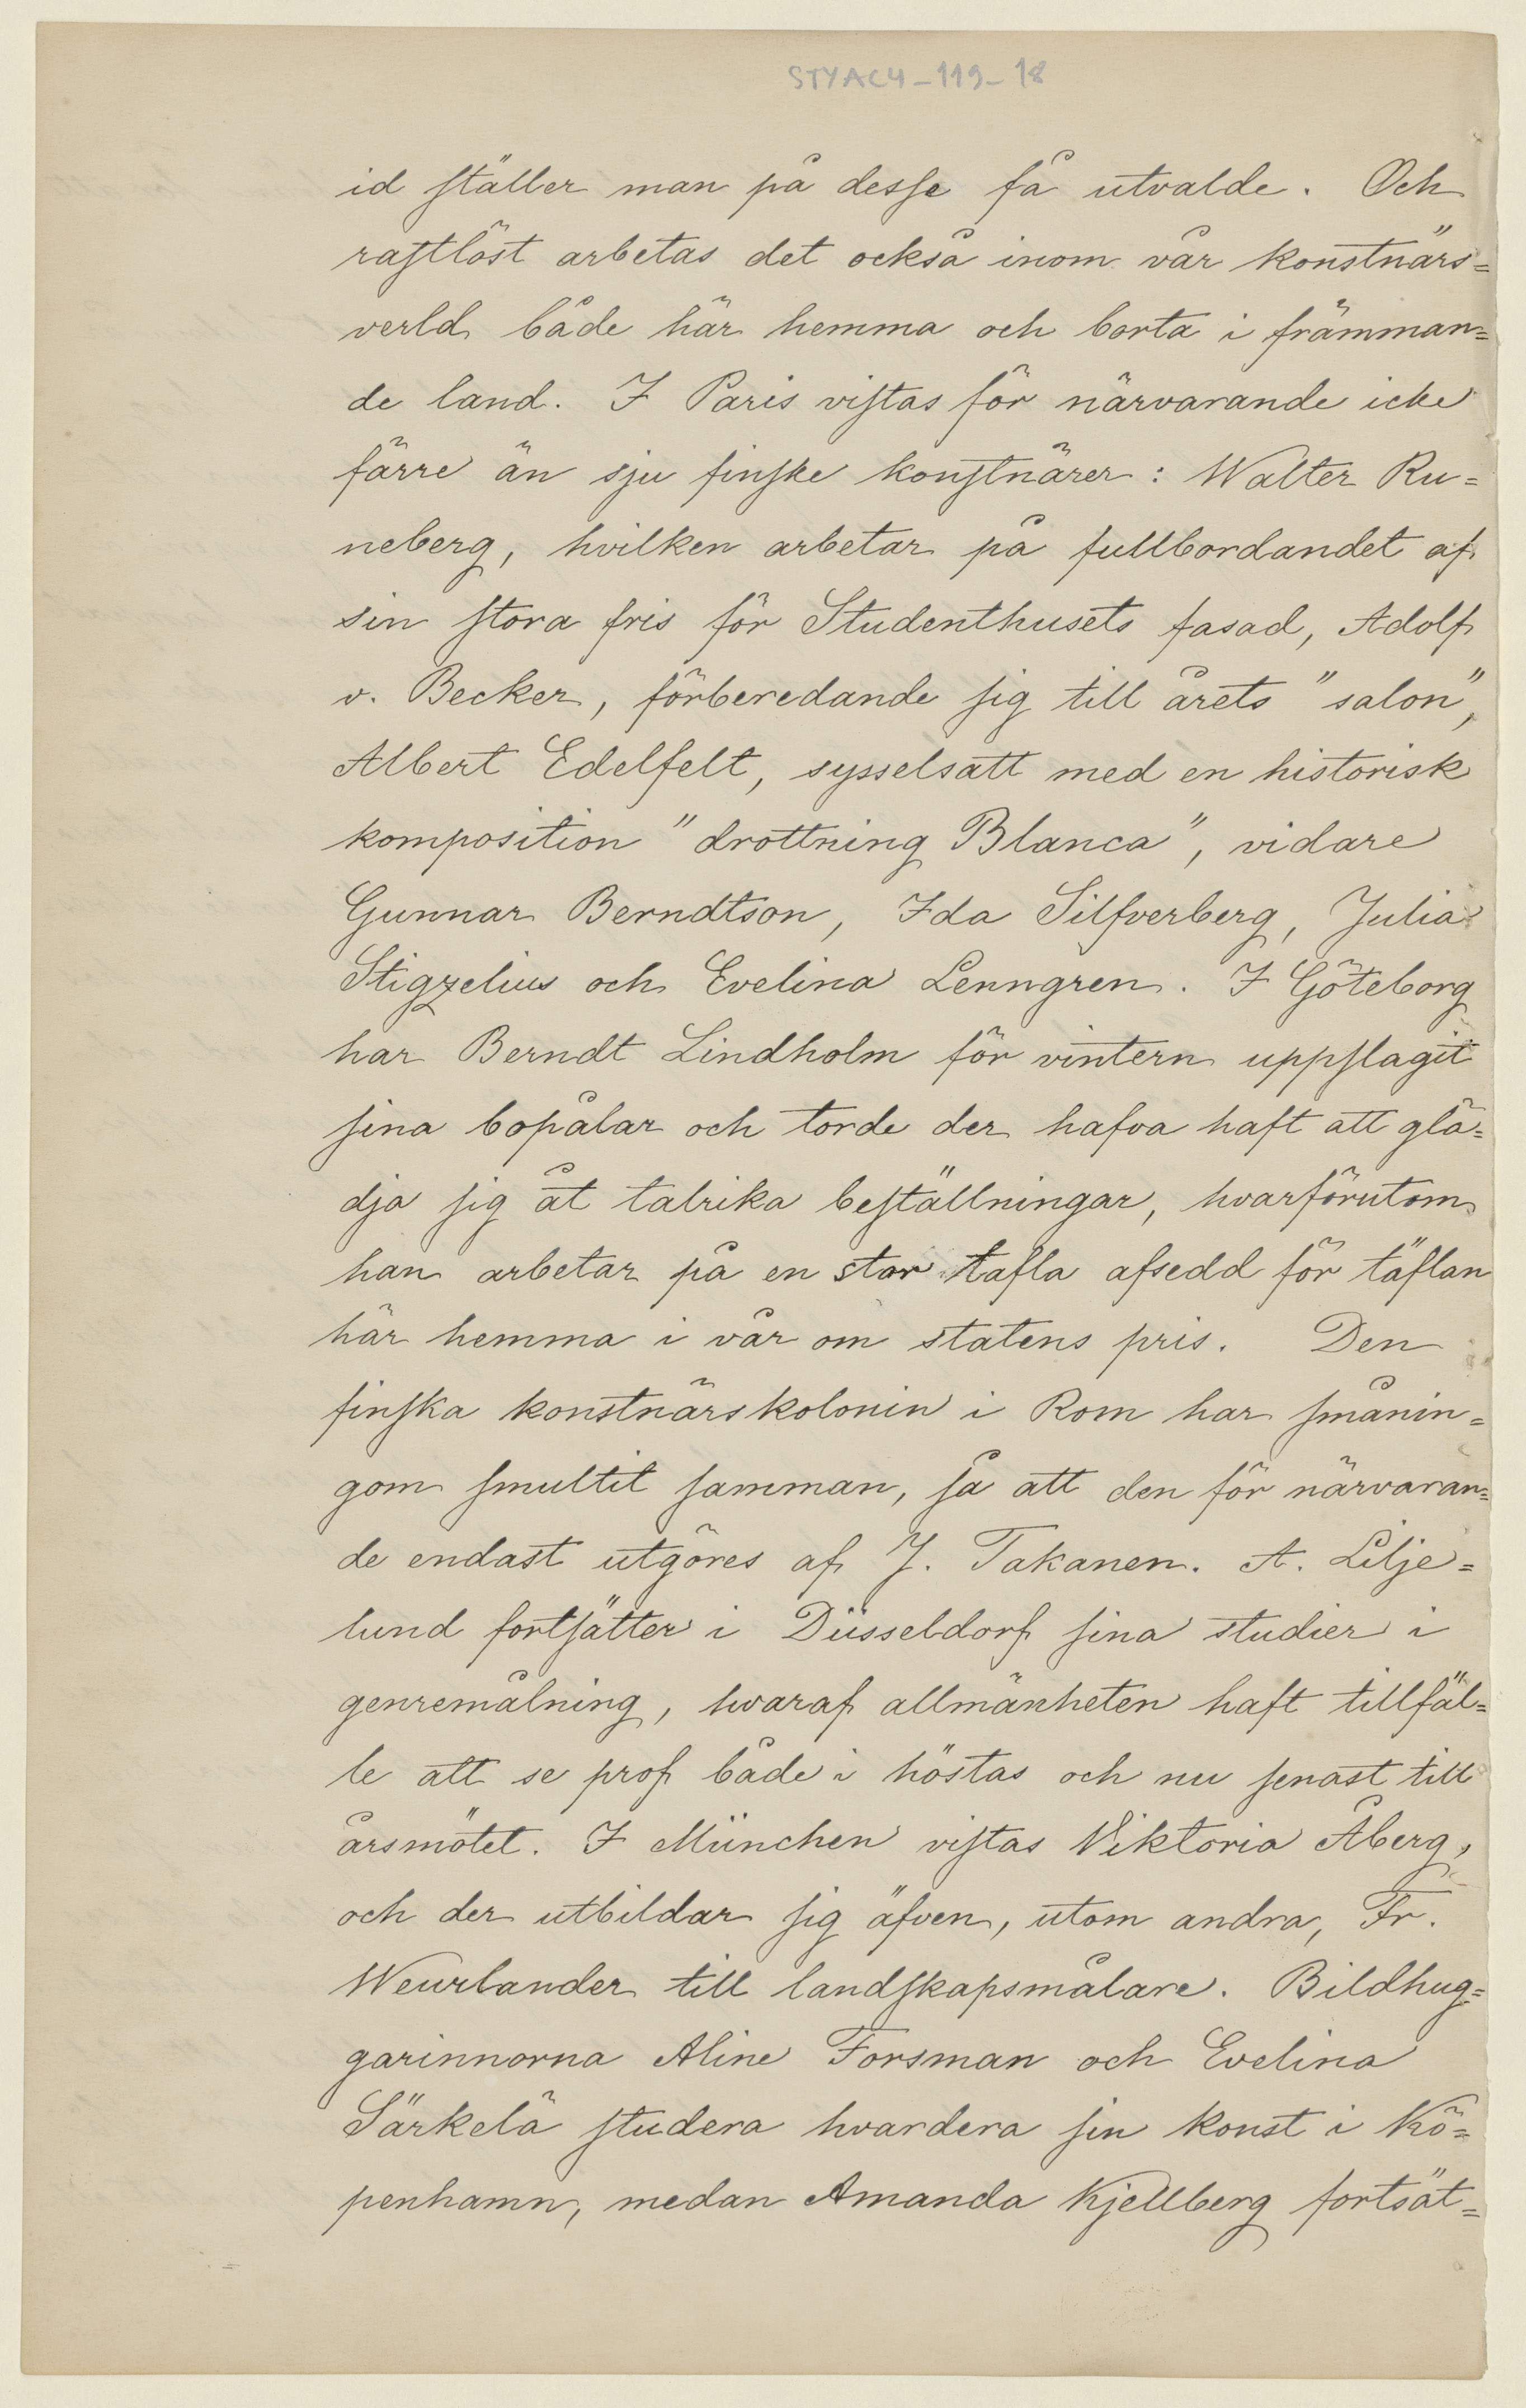 STYAC4-119-18
id ställer man på desse få utvalde. Och
rastlöst arbetas det också inom vår konstnärs=
verld både här hemma och borta i främman=
de land. I Paris vistas för närvarande icke
färre än sju finske konstnärer: Walter Ru=
neberg, hvilken arbetar på fullbordandet af
sin stora fris för Studenthusets fasad, Adolf
v. Becker, förberedande sig till årets "salon",
Albert Edelfelt, sysselsatt med en historisk
komposition "drottning Blanca", vidare
Gunnar Berndtson, Ida Silfverberg, Julia
Stigzelius och Evelina Lenngren. I Göteborg
har Berndt Lindholm för vintern uppslagit
sina bopålar och torde der hafva haft att glä=
dja sig åt talrika beställningar, hvarförutom
han arbetar på en stor tafla afsedd för täflan
här hemma i vår om statens pris. Den
finska konstnärskolonin i Rom har smånin=
gom smultit samman, så att den för närvaran=
de endast utgöres af J. Takanen. A. Lilje=
lund fortsätter i Düsseldorf sina studier i
genremålning, hvaraf allmänheten haft tillfäl=
le att se prof både i höstas och nu senast till
årsmötet. I München vistas Viktoria Åberg,
och der utbildar sig äfven, utom andra, Fr.
Weurlander till landskapsmålare. Bildhug=
garinnorna Aline Forsman och Evelina
Särkelä studera hvardera sin konst i Kö=
penhamn, medan Amanda Kjellberg fortsät=